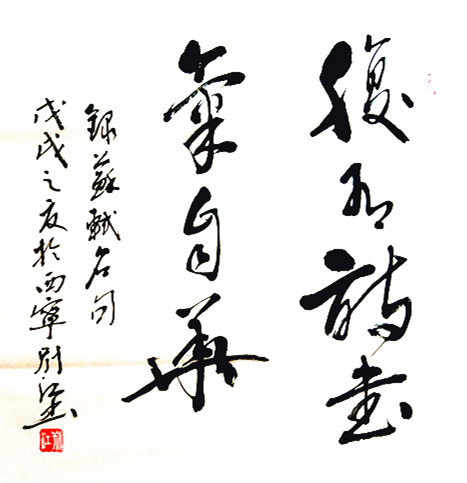 腹有詩書
氣自華
録蘇軾名句
戊戌之夏於西寧尉江